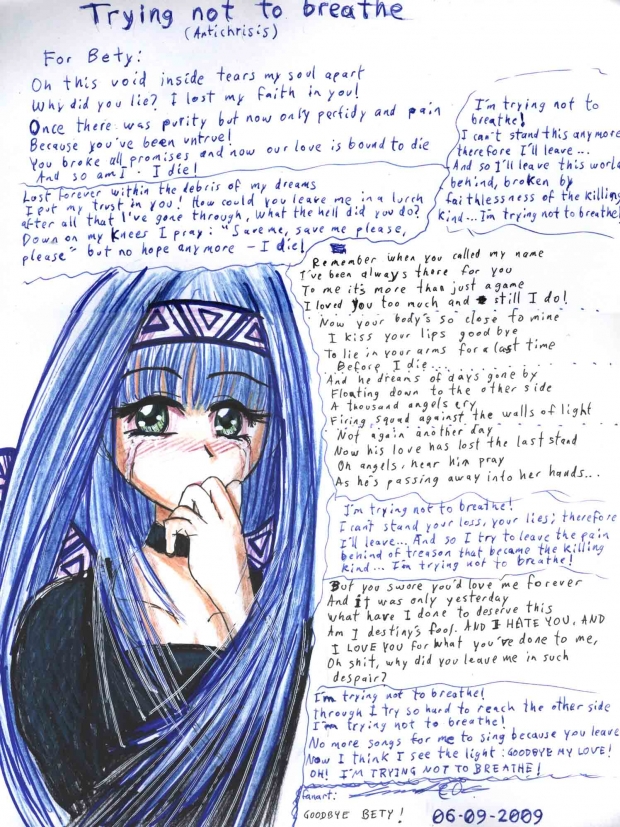 Trying not to breathe
(Antichrisis)
For Bety:
Oh this void inside tears my soul apart
Why did you lie? I lost my faith in you!
Once there was purity but now only perfidy and pain
Because you've been untrue!
You broke all promises and now our love is bound to die
And so am I. I die!
Lost forever within the debris of my dreams
I put my trust in you! How could you leave me in a lurch
after all that I've gone through, what the hell did you do?
Down on my knees I pray: "Save me, save me please,
please" but no hope anymore - I die!
I'm trying not to
breathe!
I can't stand this anymore
therefore I'll leave...
And so I'll leave this world
behind, broken by
faithlessness of the killing
kind... I'm trying not to breathe!
Remember when you called my name
I've been always there for you
To me it's more than just a game
I loved you too much and still I do!
Now your body's so close to mine
I kiss your lips goodbye
To lie in your arms for a last time
Before I die...
And he dreams of days gone by
Floating down to the other side
A thousand angels cry
Firing squad against the walls of light
Not again another day
Now his love has lost the last stand
Oh angels, hear him pray
As he's passing away into her hands...
I'm trying not to breathe!
I can't stand your loss, your lies; therefore
I'll leave... And so I try to leave the pain
behind of treason that became the killing
kind... I'm trying not to breathe!
But you swore you'd love me forever
And it was only yesterday
What have I done to deserve this
Am I destiny's fool. AND I HATE YOU, AND
I LOVE YOU for what you've done to me,
Oh shit, why did you leave me in such
despair?
I'm trying not to breathe!
through I try so hard to reach the other side
I'm trying not to breathe!
No more songs for me to sing because you leave
Now I think I see the light: GOODBYE MY LOVE!
OH! I'M TRYING NOT TO BREATHE!
fanart:
GOODBYE BETY!
06-09-2009